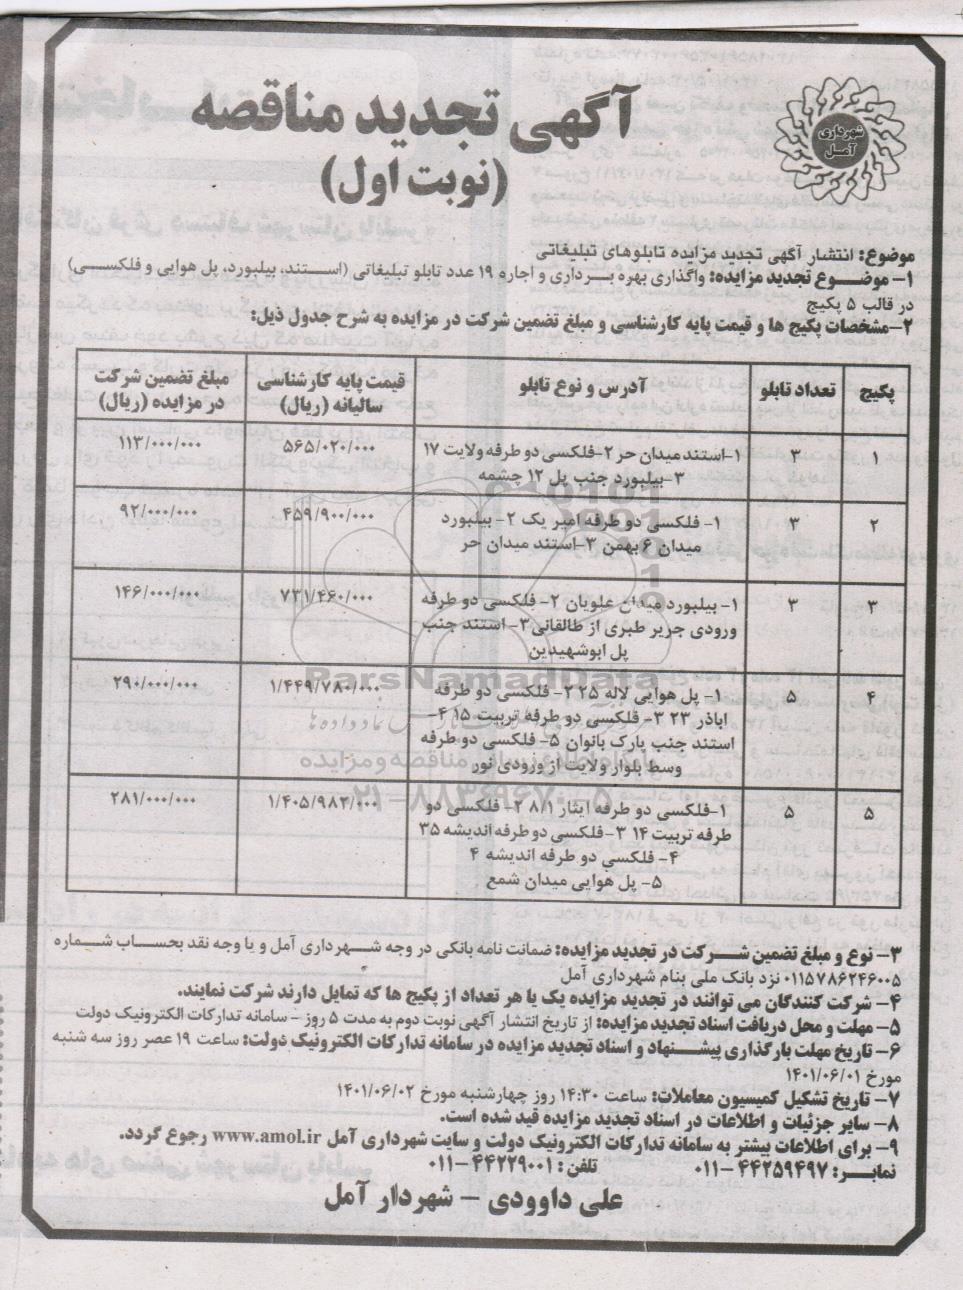 آگهی تجدید مناقصه
(نوبت اول)
شهرداری
آمل
موضوع: انتشار آگهی تجدید مزایده تابلوهای تبلیغاتی
۱- موضـــوع تجدید مزایده: واگذاری بهره بــرداری و اجاره ۱۹ عدد تابلو تبلیغاتی (اســتند، بیلبورد، پل هوایی و فلکســی)
در قالب ۵ پکیج
۲-مشخصات پکیج ها و قیمت پایه کارشناسی و مبلغ تضمین شرکت در مزایده به شرح جدول ذیل:
پکیج | تعداد تابلو | آدرس و نوع تابلو | قیمت پایه کارشناسی سالیانه (ریال) | مبلغ تضمین شرکت در مزایده (ریال)
۱ | ۳ | ۱-استند میدان حر ۲-فلکسی دو طرفه ولایت ۱۷ | ۵۶۵/۰۲۰/۰۰۰ | ۱۱۳/۰۰۰/۰۰۰
۳-بیلبورد جنب پل ۱۲ چشمه
۲ | ۳ | ۱- فلکسی دو طرفه امیر یک ۲- بیلبورد | ۴۵۹/۹۰۰/۰۰۰ | ۹۲/۰۰۰/۰۰۰
میدان ۶ بهمن ۳-استند میدان حر
۳ | ۳ | ۱- بیلبورد میدان علویان ۲- فلکسی دو طرفه | ۷۳۱/۴۶۰/۰۰۰ | ۱۴۶/۰۰۰/۰۰۰
ورودی جریر طبری از طالقانی ۳- استند جنب
پل ابوشهیدین
۴ | ۵ | ۱- پل هوایی لاله ۲۵ ۲- فلکسی دو طرفه | ۱/۴۴۹/۷۸۰/۰۰۰ | ۲۹۰/۰۰۰/۰۰۰
اباذر ۲۳ ۳- فلکسی دو طرفه تربیت ۱۵ ۴-
استند جنب پارک بانوان ۵- فلکسی دو طرفه
وسط بلوار ولایت از ورودی نور
۵ | ۵ | ۱-فلکسی دو طرفه ایثار ۸/۱ ۲- فلکسی دو | ۱/۴۰۵/۹۸۲/۰۰۰ | ۲۸۱/۰۰۰/۰۰۰
طرفه تربیت ۱۴ ۳-فلکسی دو طرفه اندیشه ۳۵
۴- فلکسی دو طرفه اندیشه ۴
۵- پل هوایی میدان شمع
ParsNamadData
۰۲۱-۸۸۳۴۹۶۷۰-۵
۳- نوع و مبلغ تضمین شــرکت در تجدید مزایده: ضمانت نامه بانکی در وجه شــهرداری آمل و یا وجه نقد بحساب شــماره
۰۱۱۵۷۸۶۲۴۶۰۰۵ نزد بانک ملی بنام شهرداری آمل
۴- شرکت کنندگان می توانند در تجدید مزایده یک یا هر تعداد از پکیج ها که تمایل دارند شرکت نمایند.
۵- مهلت و محل دریافت اسناد تجدید مزایده: از تاریخ انتشار آگهی نوبت دوم به مدت ۵ روز - سامانه تدارکات الکترونیک دولت
۶- تاریخ مهلت بارگذاری پیشــنهاد و اسناد تجدید مزایده در سامانه تدارکات الکترونیک دولت: ساعت ۱۹ عصر روز سه شنبه
مورخ ۱۴۰۱/۰۶/۰۱
۷- تاریخ تشکیل کمیسیون معاملات: ساعت ۱۴:۳۰ روز چهارشنبه مورخ ۱۴۰۱/۰۶/۰۲
۸- سایر جزئیات و اطلاعات در اسناد تجدید مزایده قید شده است.
۹- برای اطلاعات بیشتر به سامانه تدارکات الکترونیک دولت و سایت شهرداری آمل www.amol.ir رجوع گردد.
نمابــر: ۴۴۲۵۹۴۹۷-۰۱۱ تلفن: ۴۴۲۲۹۰۰۱-۰۱۱
علی داوودی - شهردار آمل